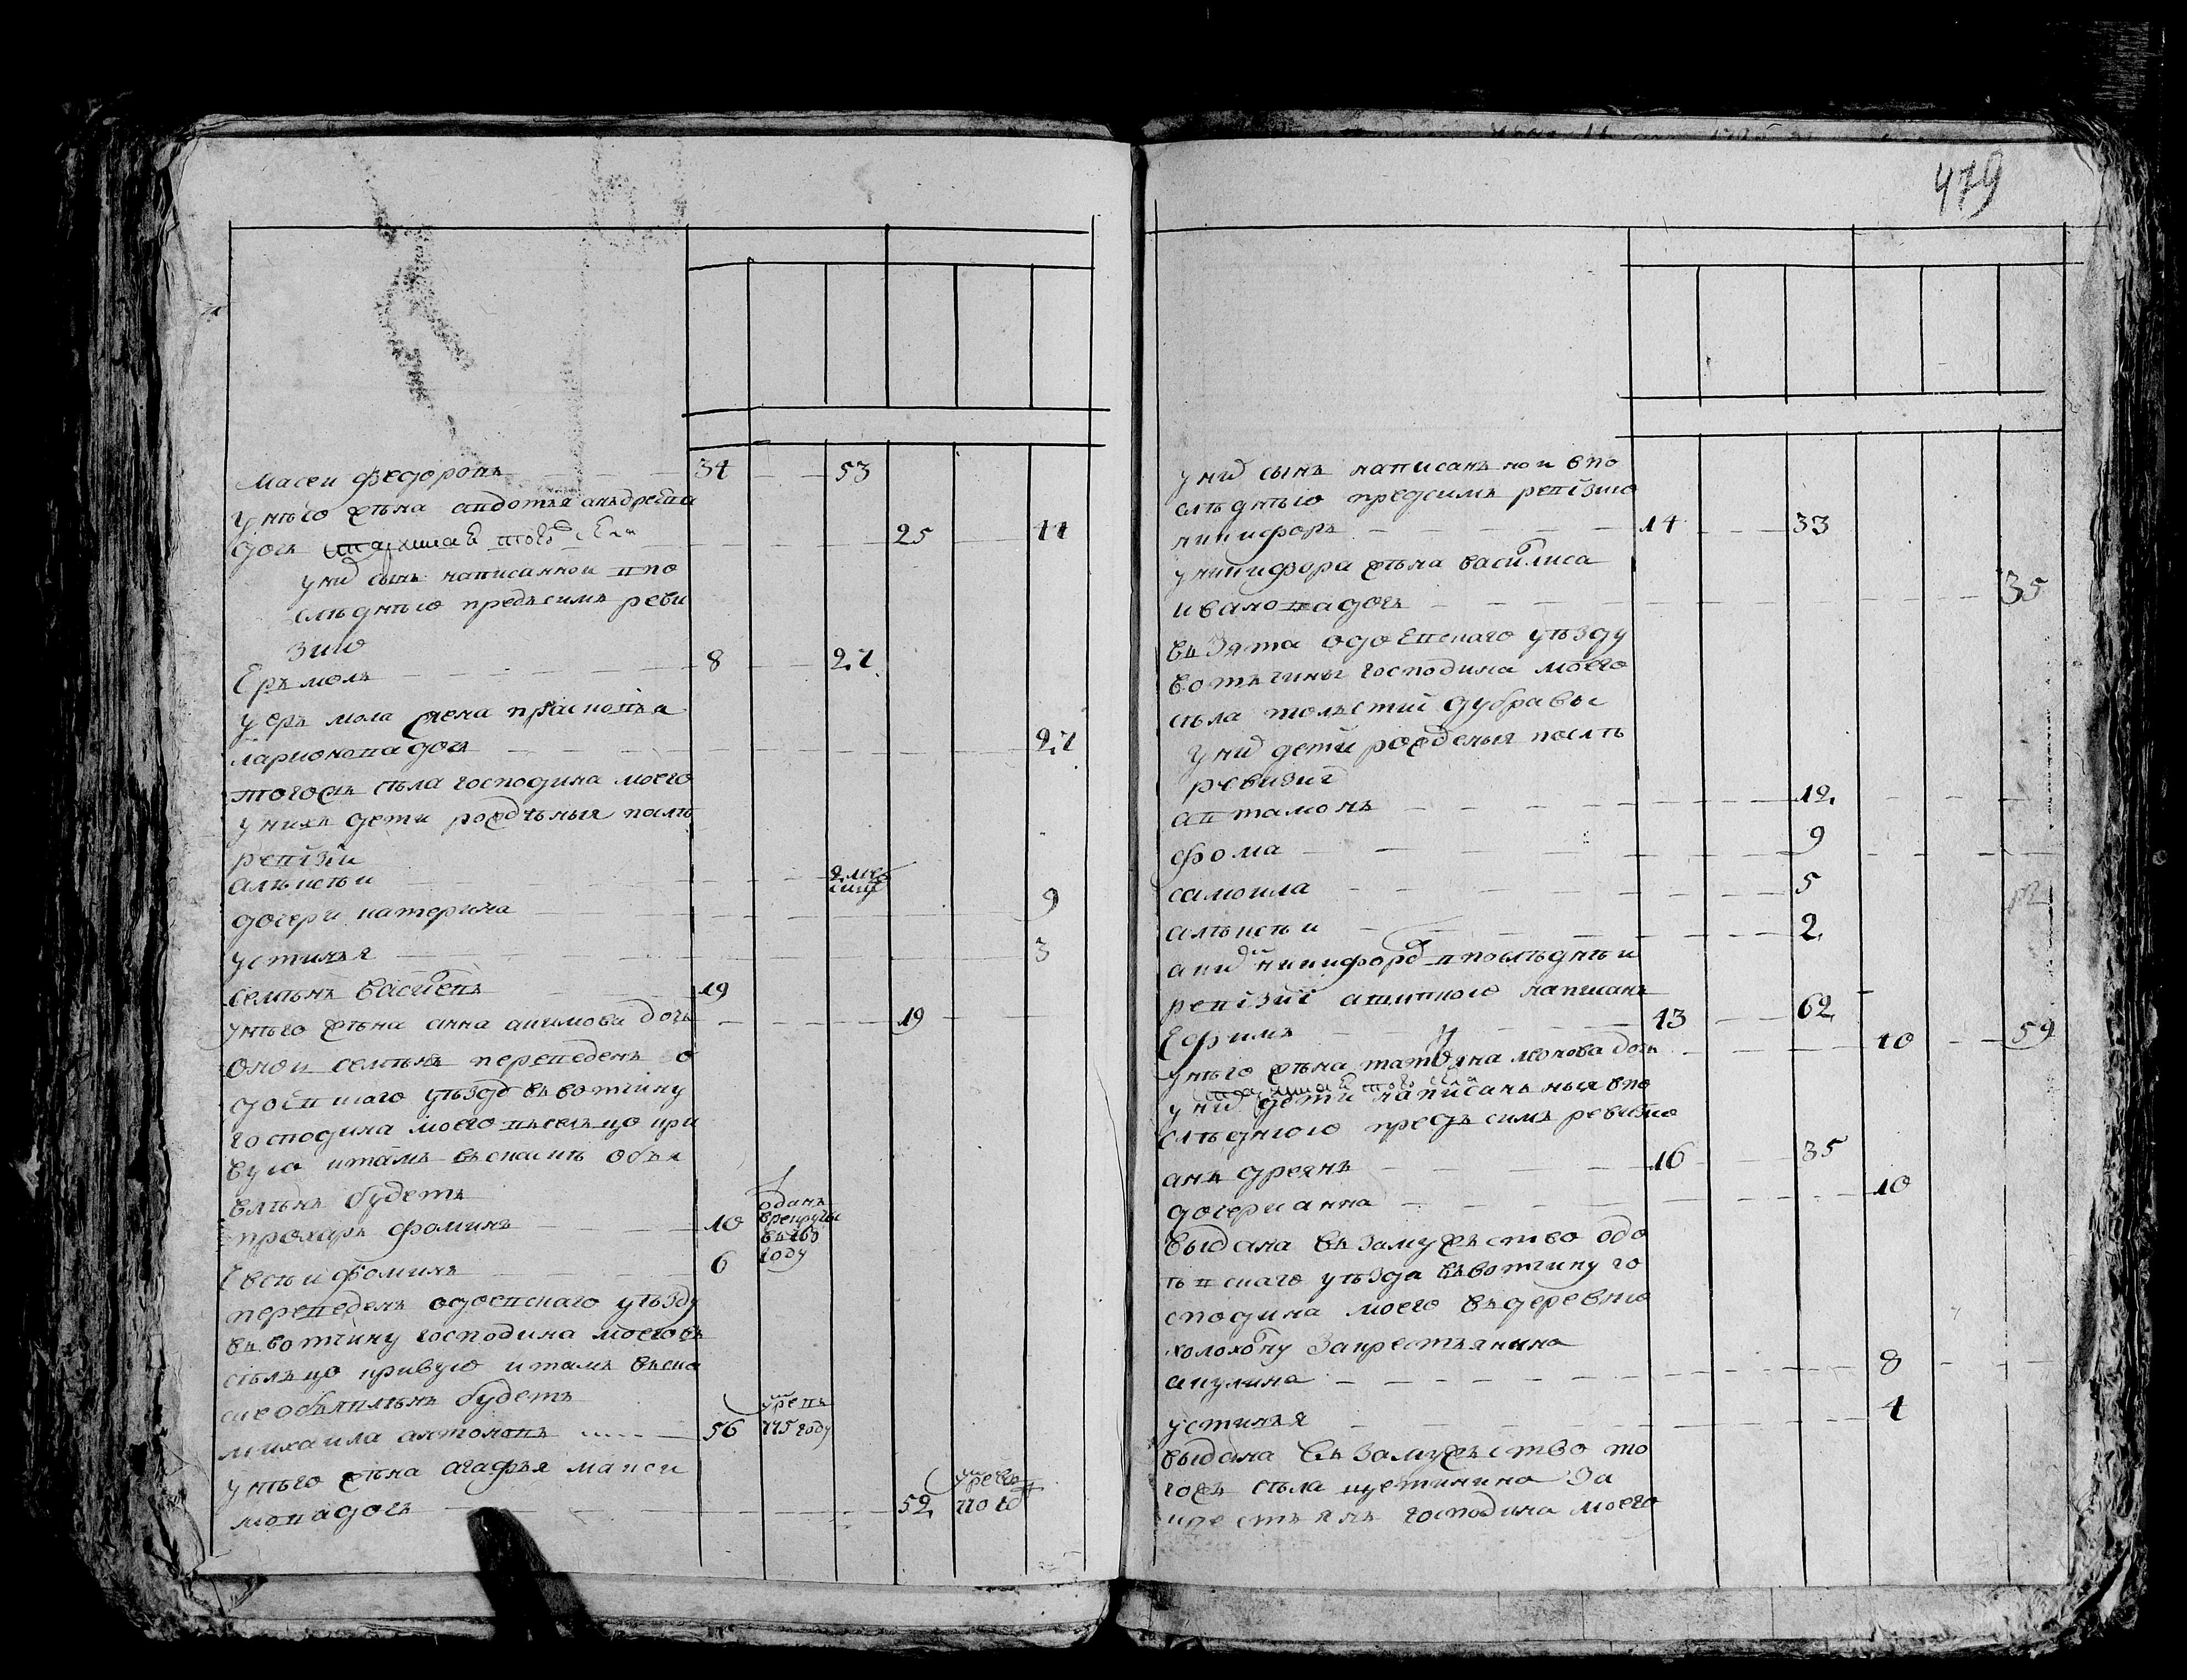 479
Масеи федоровъ 34 53
у него жена авдотья анъдреѣва
дочь старинная того ж села 25 44
у них сынъ написаннои впо
слѣднею предъсимъ реви
зию
Еръмолъ 8 27
у еръмола жена прасковья
ларионовадочь 27
тогожъ села господина моего
у нихъ дети рожденыя послѣ
ревизии
алѣксѣи 2 мес
дочери катерина 9
устинья 3
семѣнъ васильевъ 19
у него жена анна акимова дочь 19
онои семѣнъ переведенъ о
доевскаго уѣзду въвотчину
господина моего въселъцо кри
вую итамъ въсказкѣ объя
влѣнъ будетъ
прохаръ фоминъ 10 отданъ
врекруты
въ
году
Евсѣи фоминъ 6
переведенъ одоевскаго уѣзду
въвотчину господина моего въ
сельцо кривую итамъ въска
ске объявлѣнъ будетъ
михаила антоновъ 56 умре въ
775 году
у него жена агафья макси
мовадочь 52 умре въ

у них сынъ написанънои впо
слѣднею предсимъ ревизию
никифоръ 14 33
у никифора жена василиса
ивановадочь 35
въЗята одоевскаго уѣзду
вотъчины господина моего
села толъстыи дубравы
у них дети рожденыя послѣ
ревизии
автамонъ 12
фома 9
самоила 5
алѣксѣи 2
дяди никифору впослѣднеи
ревизии написанъ
Ефимъ 43 62
у него жена татьяна леонова дочь 40 59
старинная того села
у них дети написанъныя впо
слѣднюю предъ симъ ревизию
анъдреянъ 16 35
дочери анна 10
выдана въ замужъство одо
евскаго уѣзда въвотчину го
сподина моего въдеревню
холохолну закрестьянина
акулина 8
устинья 4
выдана въ замужъство то
гожъ села щетинина за
крестьянъ господина моего